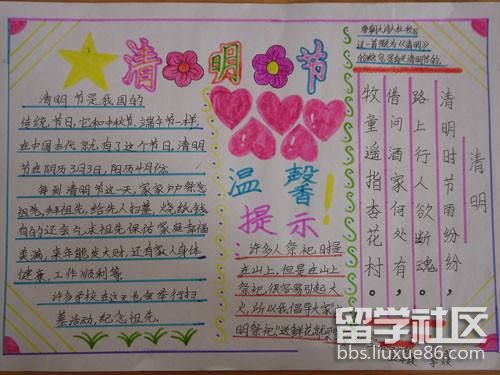 清明节
清明节是我国的
传统节日,它和中秋节、端午节一样,
在中国古代就有了这个节日,清明
节在阴历3月3日,阳历4月份。
每到清明节这一天,家家户户祭忿
祖先,拜祖先,给先人扫墓,烧纸钱,
有的还会乞求祖先保佑家庭幸福
美满,来年能发大财,还有家人身体
健康,工作顺利等。
许多学校在这天也会举行扫
墓活动,纪念祖先。
温馨
提示!
许多人祭祀时是
在山上,但是在山上
祭祀,很容易引起火
火,所以我倡导大家
明祭祀"送鲜花就
这一首题为《清明》
清明
清明时节雨纷纷,
路上行人欲断魂。
借问酒家何处有,
牧童遥指杏花村。
留学社区
bbs.liuxue86.com